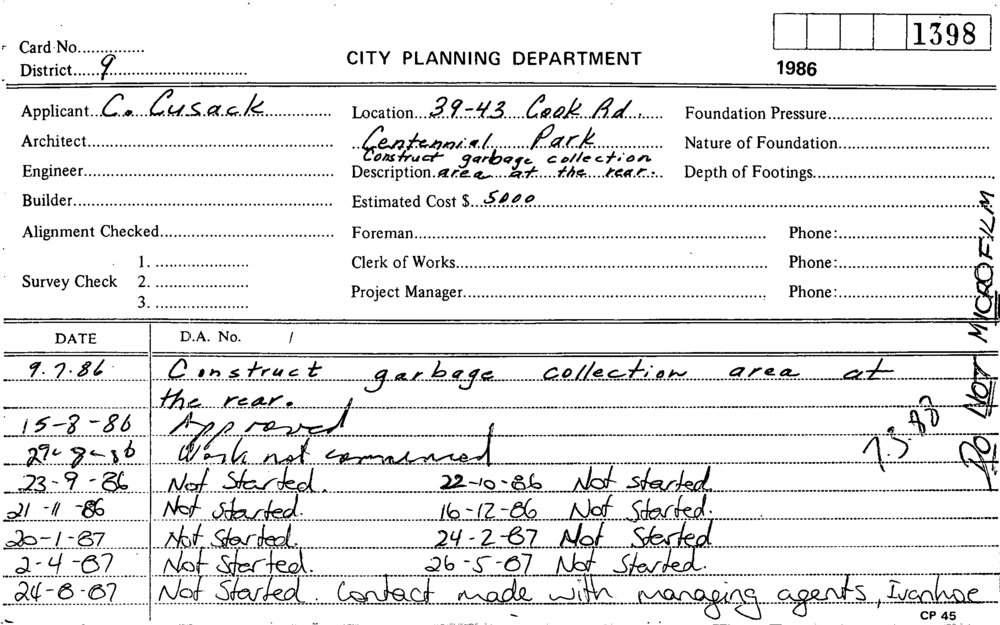 Card No...............
1398
District......9..............................
CITY PLANNING DEPARTMENT
1986
Applicant..C. Cusack
Location...39-43 Cook Rd.
Foundation Pressure
Architect
Centennial Park
Nature of Foundation
Construct garbage collection
Engineer
Description. area at the rear.
Depth of Footings
Builder
Estimated Cost $...5000
Alignment Checked
Foreman
Phone:
Survey Check
1.
2.
3.
Clerk of Works
Phone:
Project Manager
Phone:
DO NOT MICROFILM
DATE
D.A. No. /
9.7.86 Construct garbage collection area at
the rear.
15-8-86 Approved
29-8-86 Work not commenced
23-9-86 Not Started. 22-10-86 Not started.
21-11-86 Not started. 16-12-86 Not Started.
20-1-87 Not Started. 24-2-87 Not Started
2-4-87 Not Started. 26-5-87 Not Started.
24-8-87 Not Started. Contact made with managing agents, Ivanhoe
CP 45